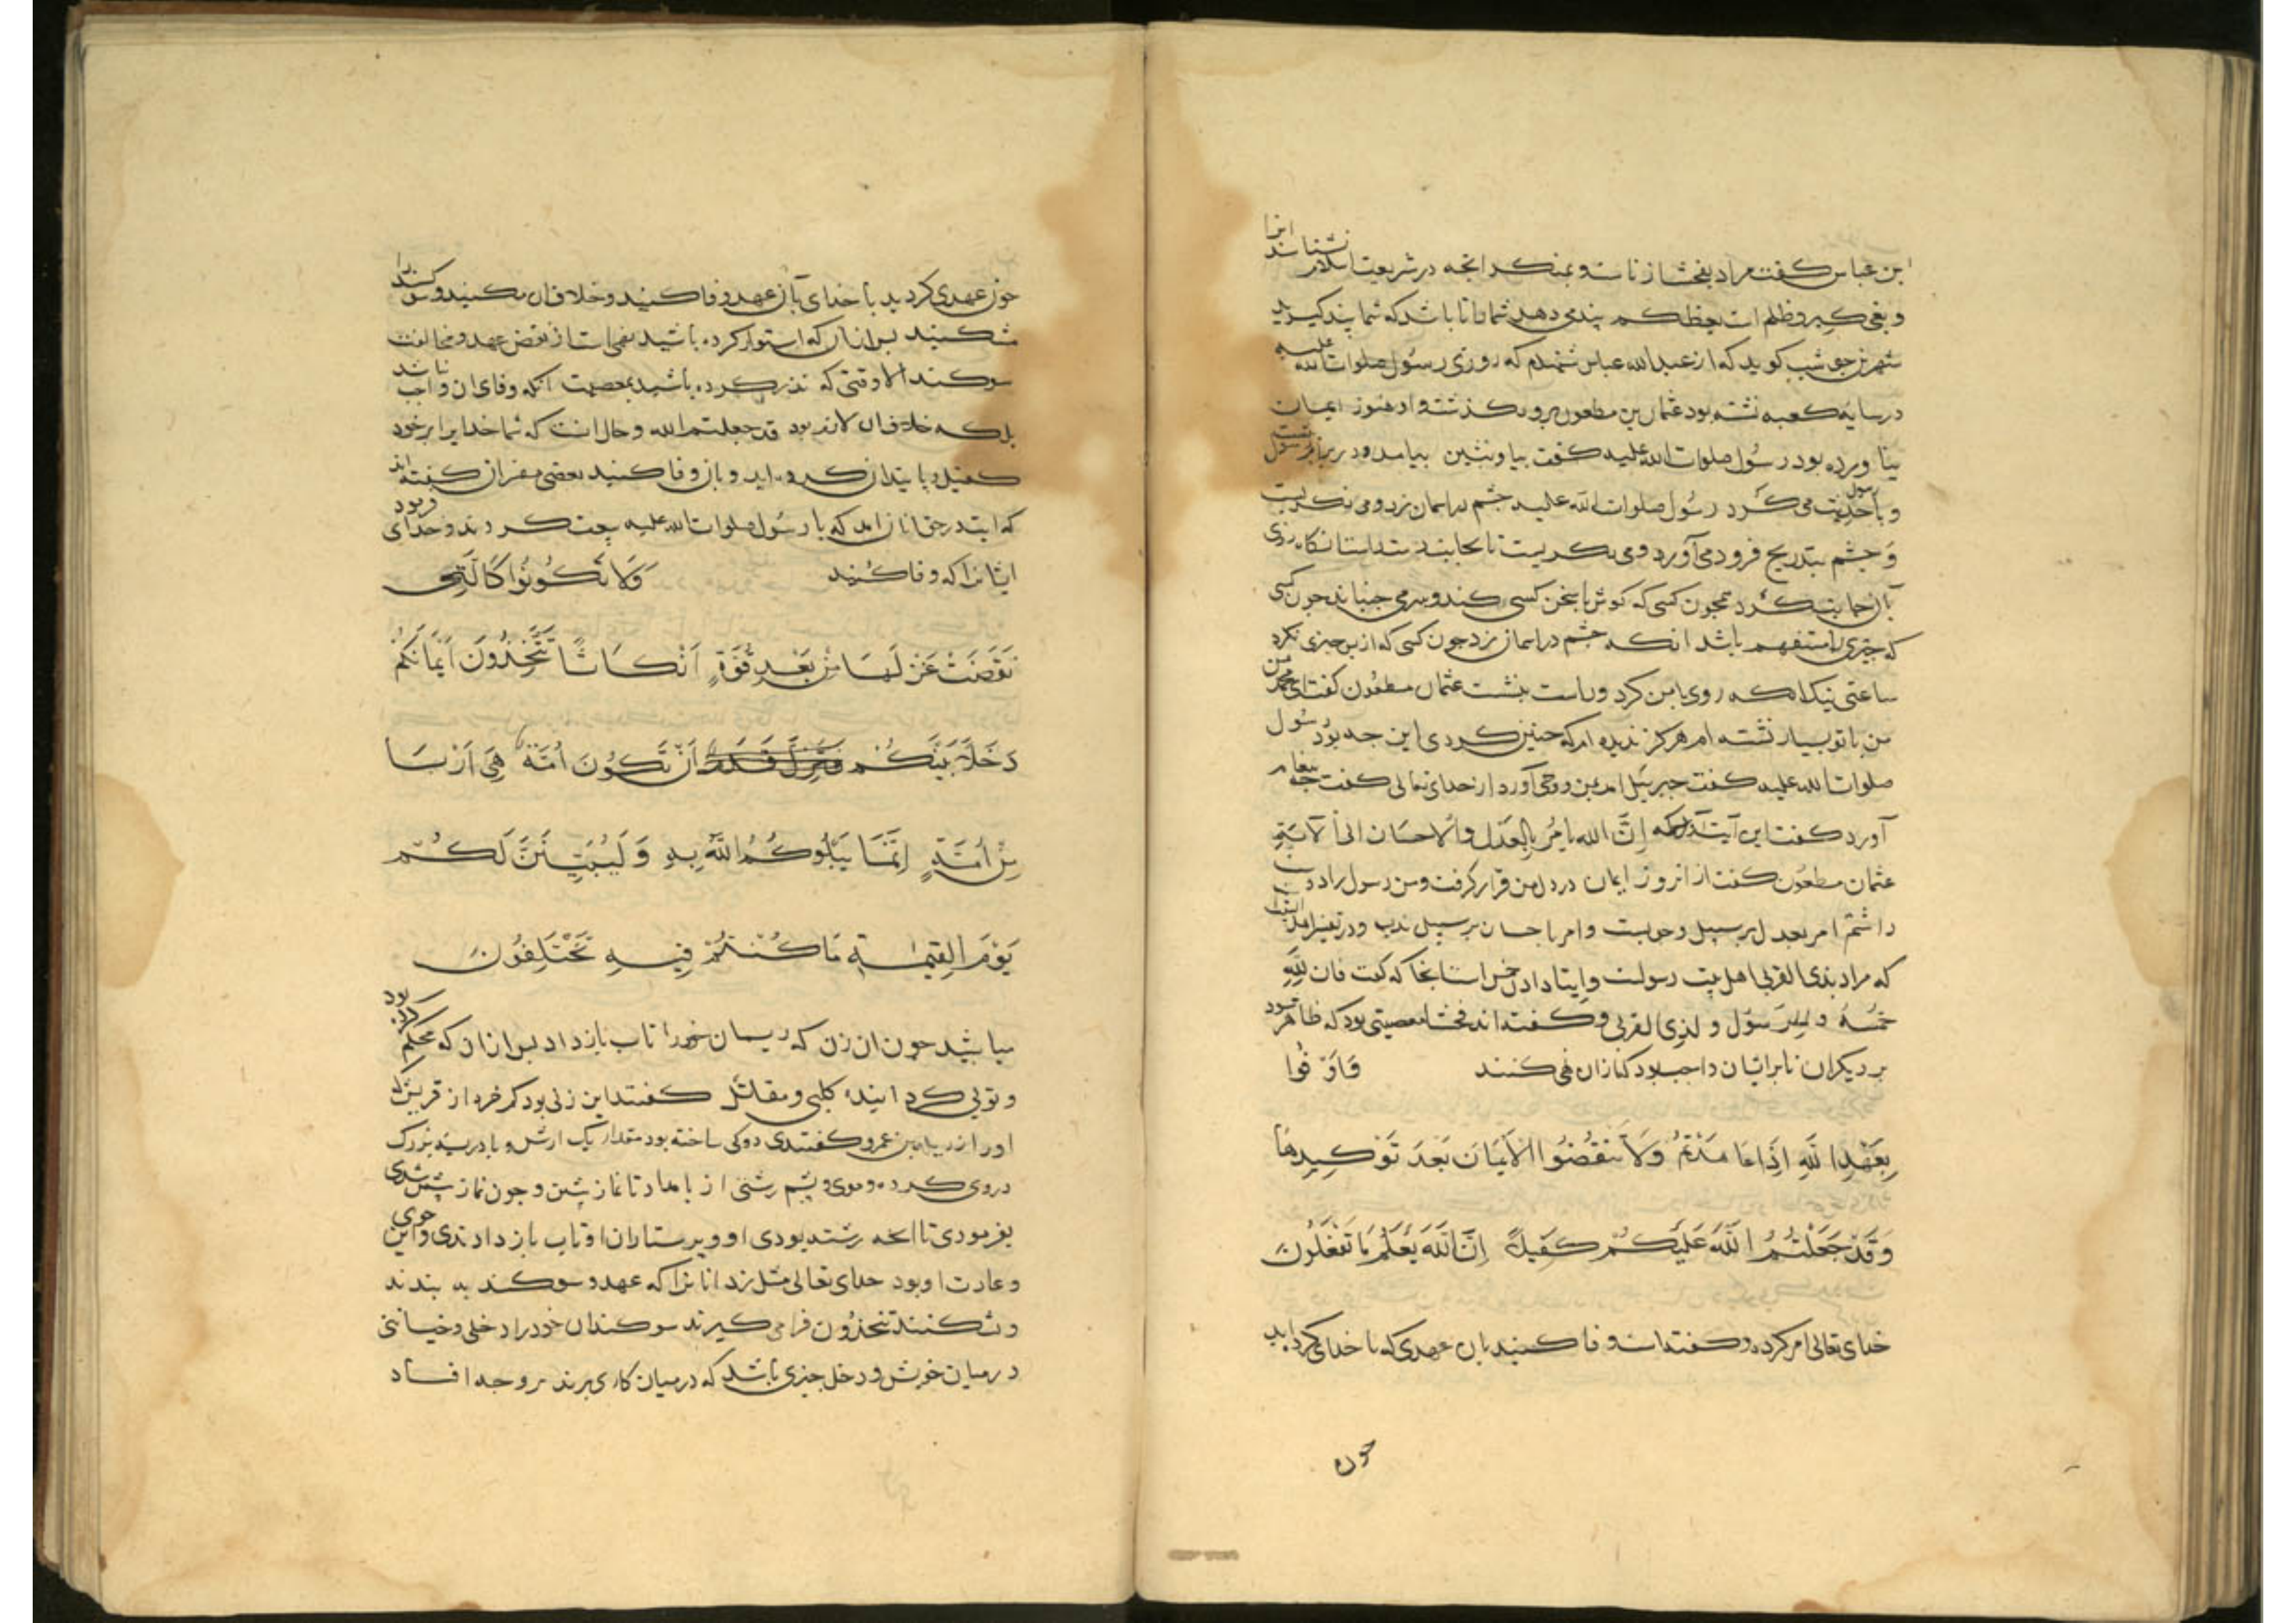 ابن عباس كفت مراد بفحشا زناست و بمنكر انچه در شریعت اسلام نشناسند انرا
و بغی كبر و ظلم است یعظكم پندی دهد شما را تا باشد كه شما پند كیرید
شهر بن حوشب كوید كه از عبدالله عباس شنیدم كه روزی رسول صلوات الله علیه
در سایه كعبه نشته بود عثمان بن مطعون برو بگذشت و او هنوز ایمان
بنا ورده بود رسول صلوات الله علیه كفت بیا و بنشین بیامد و در برابر رسول
و با رسول حدیث می كرد رسول صلوات الله علیه چشم در اسمان زد و می نكریست
و چشم بتدریج فرود می آورد و می نكریست تا بجانب
همچون كسی كه كوش با سخن كسی كند و سر می جنباند چون كسی
كه چیزی را مستفهم باشد انكه چشم در اسمان زد چون كسی كه از پس چیزی نكرد
ساعتی نیك انكه روی با من كرد و راست بنشست عثمان مطعون كفت ای محمد من
من با تو بسیار نشسته ام هركز ندیده ام كه چنین كردی این چه بود رسول
صلوات الله علیه كفت جبرئیل امد بمن و وحی آورد از خدای تعالی كفت چه پیغام
آورد كفت این آیت كه إنَّ الله یامُرُ بِالعَدْل والاحسَان الی الآیَة
عثمان مطعون كفت از انروز ایمان در دل من قرار كرفت و من رسول را دوست
داشتم امر بعدل بر سبیل وجوبست و امر باحسان بر سبیل ندب و در تفسیر
كه مراد بذی القربی اهل بیت رسولست و ایتا دادن خمس است انجا كه كفت فان لله
خمسه و للرسول و لذی القربی و كفته اند فحشا معصیتی بود كه ظاهر شود
بر دیكران تا بر ایشان واجب بود كه از ان نهی كنند وَاَوْفُوا
بِعَهْدِ اللَّهِ اِذَا عَاهَدْتُمْ وَلَا تَنْقُضُوا الْاَیْمَانَ بَعْدَ تَوْكِیدِهَا
وَقَدْ جَعَلْتُمُ اللَّهَ عَلَیْكُمْ كَفِیلًا اِنَّ اللَّهَ یَعْلَمُ مَا تَفْعَلُونَ
خدای تعالی امر كرده و كفته است وفا كنید بان عهدی كه با خدای كرده اید
چون
چون عهدی كردید با خدای بآن عهد وفا كنید و خلاف ان مكنید و سوكند را
مشكنید پس از ان كه استوار كرده باشید نهی است از نقض عهد و مخالفت
سوكند الا وقتی كه نذر كرده باشید بمعصیت انكه وفای ان واجب نباشد
بلكه خلاف ان لازم بود قد جعلتم الله و حال انست كه شما خدایرا بر خود
كفیل و پایندان كرده اید و بان وفا كنید بعضی مفسران كفته اند
كه ایت در حق انان امد كه با رسول صلوات الله علیه بیعت كردند و خدای فرمود
ایشانرا كه وفا كنید وَلَا تَكُونُوا كَالَّتِی
نَقَضَتْ غَزْلَهَا مِنْ بَعْدِ قُوَّةٍ اَنْكَاثًا تَتَّخِذُونَ اَیْمَانَكُمْ
دَخَلًا بَیْنَكُمْ اَنْ تَكُونَ اُمَّةٌ هِیَ اَرْبَیٰ
مِنْ اُمَّةٍ اِنَّمَا یَبْلُوكُمُ اللَّهُ بِهِ وَلَیُبَیِّنَنَّ لَكُمْ
یَوْمَ الْقِیٰمَةِ مَا كُنْتُمْ فِیهِ تَخْتَلِفُونَ
مباشید چون ان زن كه ریسمان خود را تاب باز داد پس از ان كه محكم كرده بود
و توبی كردانید كلبی و مقاتل كفتند این زنی بود كم خرد از قریش
او را بن عمرو كفتندی دوكی ساخته بود مقدار یك ارش و بادریسه بزرك
در وی كرده و موی و پشم رشتی از بامداد تا نماز پیشین و چون نماز پیشین شدی
بفرمودی تا انچه رشته بودی او و پرستاران او تاب باز دادندی و این خوی
و عادت او بود خدای تعالی مثل زد انانرا كه عهد و سوكند به بندند
و بشكنند تتخذون فرا می كیرند سوكندان خود را دخلی و خیانتی
در میان خویش و دخل چیزی باشد كه در میان كاری برند بر وجه افساد